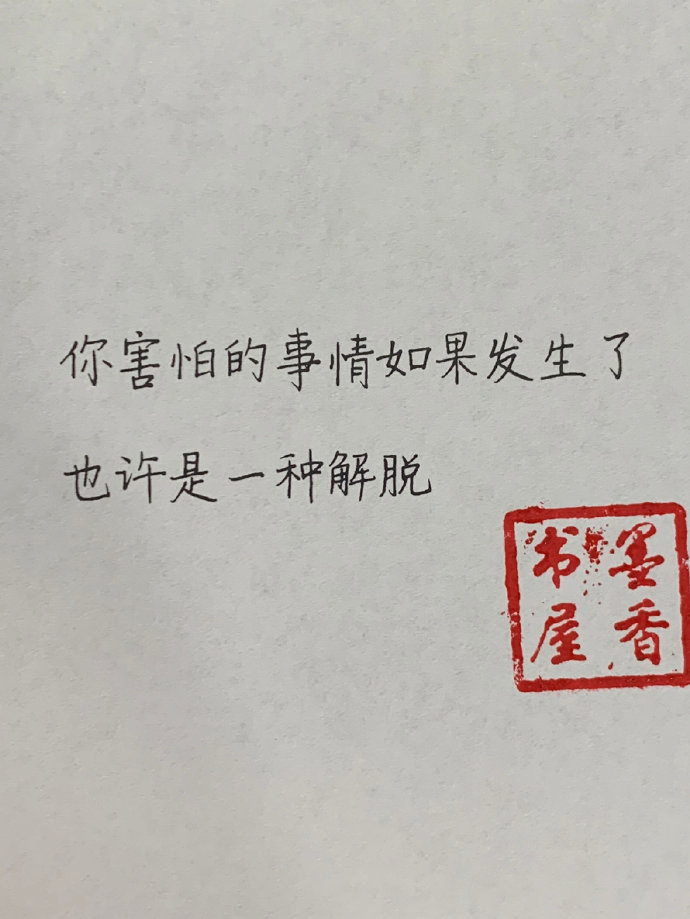 你害怕的事情如果发生了
也许是一种解脱
墨香
书屋